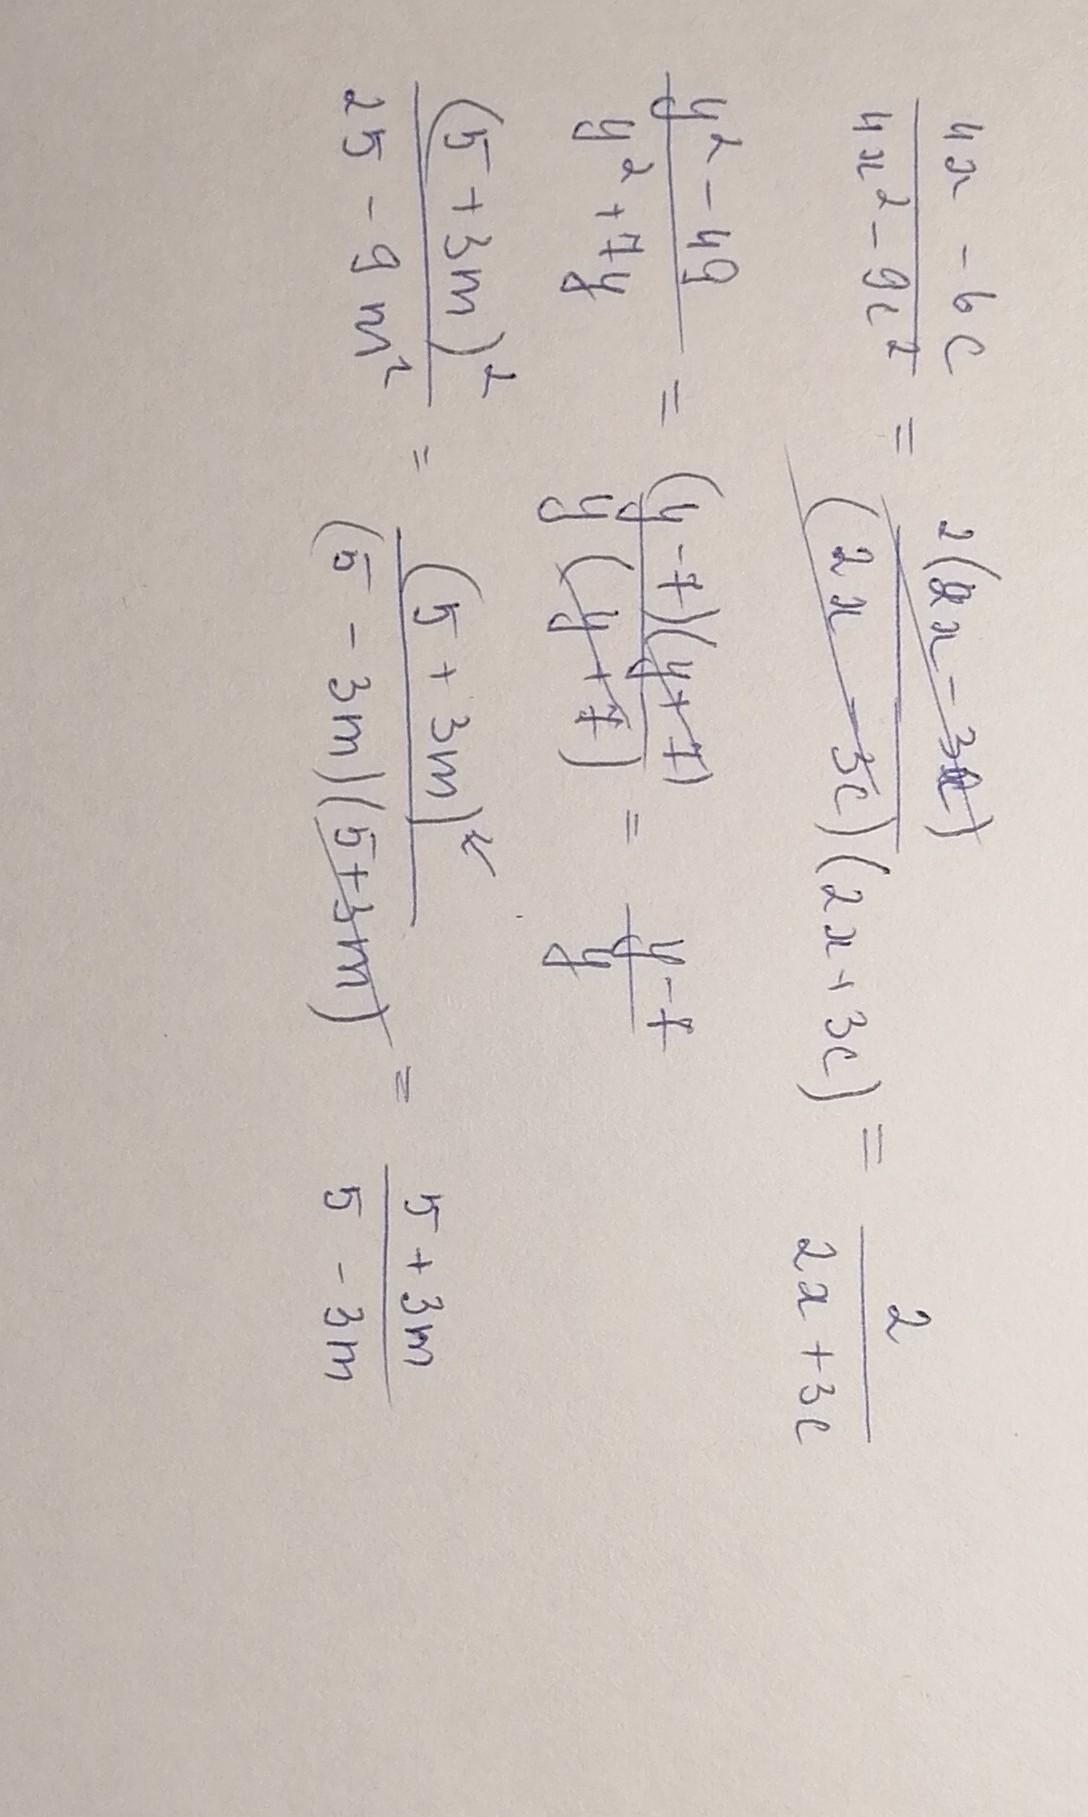 (4x - 6c)/(4x² - 9c²) = 2(2x - 3c)/((2x - 3c)(2x + 3c)) = 2/(2x + 3c)
(y² - 49)/(y² + 7y) = (y - 7)(y + 7)/(y(y + 7)) = (y - 7)/y
(5 + 3m)²/(25 - 9m²) = (5 + 3m)²/((5 - 3m)(5 + 3m)) = (5 + 3m)/(5 - 3m)